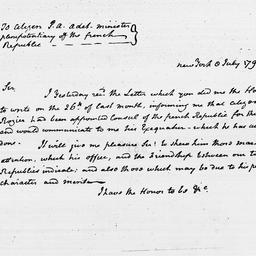 To Citizen P. A. Adet. minister
plenipotentiary of the french
Republic
new York 8 July 179
Sir
I Yesterday recd. the Letter which you did me the Ho
to write on the 26th of last month, informing me that Citizen
Rozier had been appointed Consul of the french Republic for the
and would communicate to me his Exequatur - which he has ac
done.
It will give me pleasure Sir! to shew him those marks
attention, which his office, and the Friendship between our t
Republics indicate; and also those which may be due to his p
character and merits
I have the Honor to be &c.